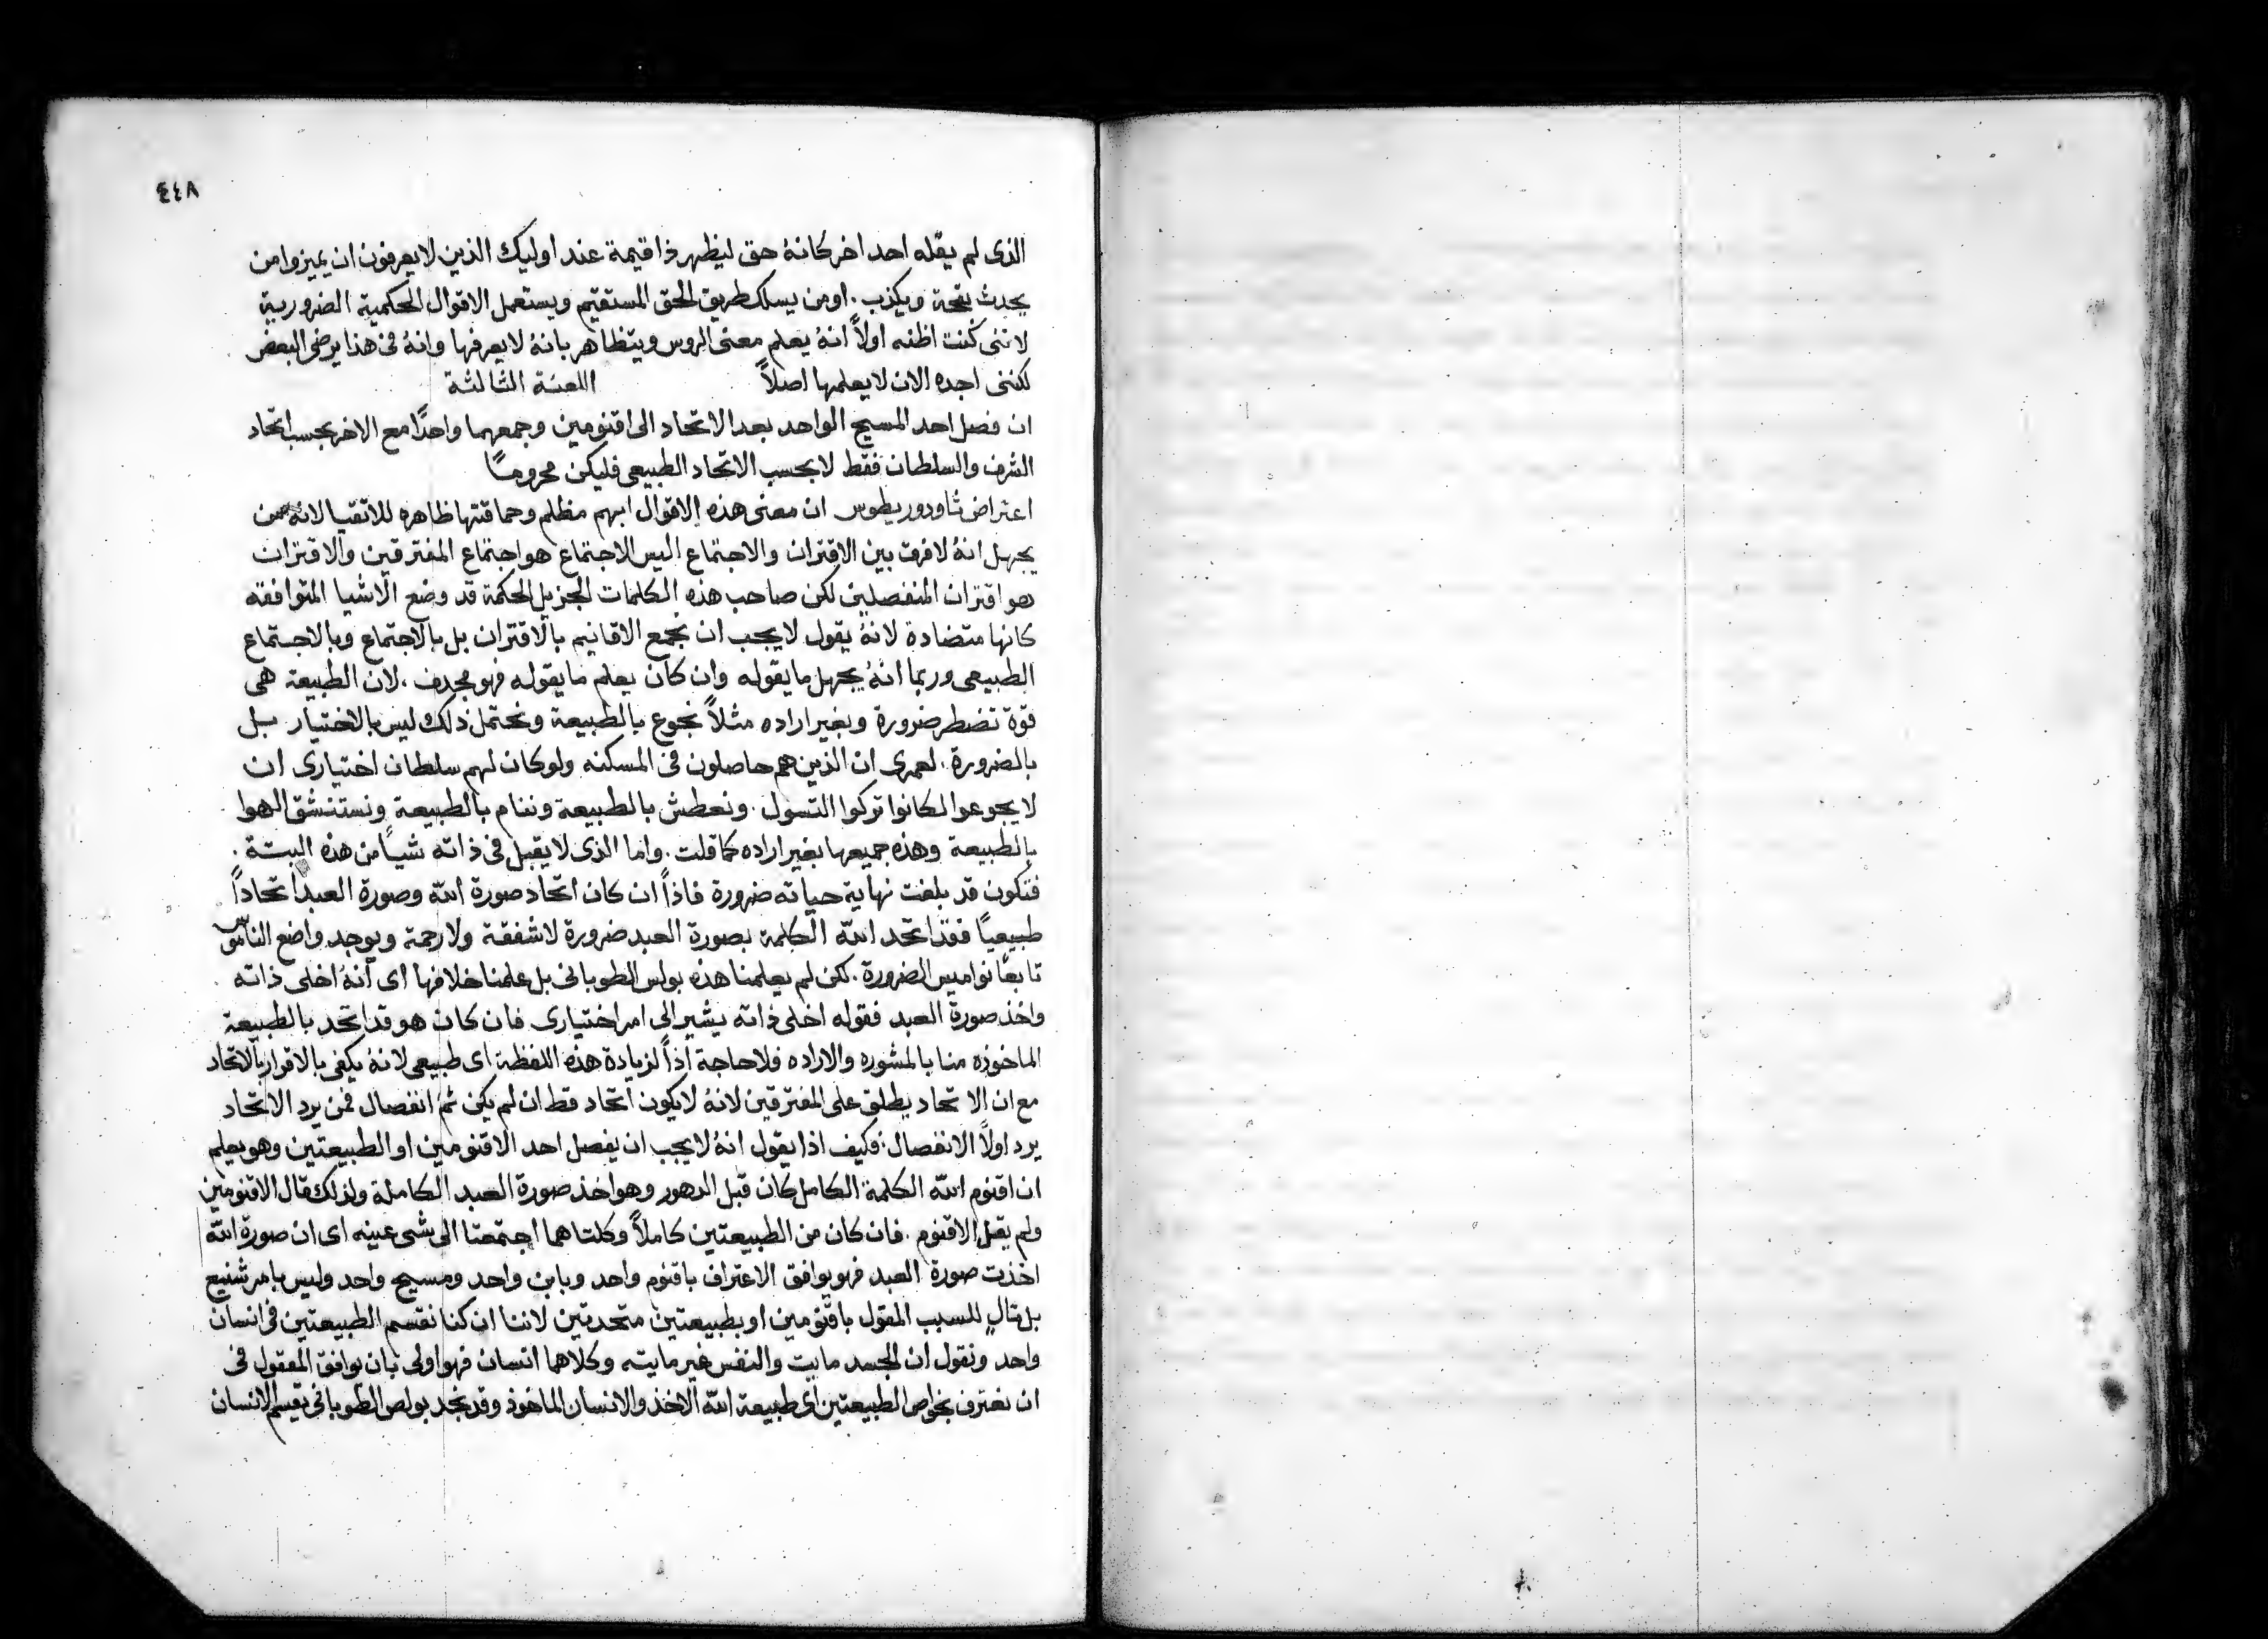 ٤٤٨
الذى لم يقله احد اخر كانهُ حق ليظهر ذا قيمة عند اوليك الذين لا يعرفون ان يميزوا من
يحدث بقحة ويكذب . اومن يسلك طريق الحق المستقيم ويستعمل الاقوال الحكمية الضرورية
لاننى كنت اظنه اولاً انهُ يعلم معنى الروس ويتظاهر بانهُ لا يعرفها وانهُ فى هذا يرضى البعض
لكننى اجده الان لا يعلمها اصلاً اللعنة الثالثة
ان فصل احد المسيح الواحد بعد الاتحاد الى اقنومين وجمعهما واحدًا مع الاخر بحسب اتحاد
الشرف والسلطان فقط لا بحسب الاتحاد الطبيعى فليكن محرومًا
اعتراض ثاودوريطوس ان معنى هذه الاقوال ابهم مظلم وحماقتها ظاهره للاتقيا لانهُ من
يجهل انهُ لا فرق بين الاقتران والاجتماع اليس الاجتماع هو اجتماع المفترقين والاقتران
هو اقتران المنفصلين لكن صاحب هذه الكلمات الجزيل الحكمة قد وضع الاشيا المتوافقه
كانها متضادة لانهُ يقول لا يجب ان نجمع الاقانيم بالاقتران بل بالاجتماع وبالاجتماع
الطبيعى وربما انهُ يجهل ما يقوله وان كان يعلم ما يقوله فهو مجدف . لان الطبيعة هى
قوة تضطر ضرورة وبغير اراده مثلاً نجوع بالطبيعة ونحتمل ذلك ليس بالاختيار بل
بالضرورة . لعمرى ان الذين هم حاصلون فى المسكنه ولو كان لهم سلطان اختيارى ان
لا يجوعوا لكانوا تركوا التسول . ونعطش بالطبيعة وننام بالطبيعة ونستنشق الهوا
بالطبيعة وهذه جميعها بغير اراده كما قلت . واما الذى لا يقبل فى ذاته شياً من هذه البتة .
فتكون قد بلغت نهاية حياته ضرورة فاذاً ان كان اتحاد صورة الله وصورة العبد اتحاداً
طبيعيًا فقد اتحد الله الكلمة بصورة العبد ضرورة لا شفقة ولا رحمة ويوجد واضع الناموس
تابعًا نواميس الضرورة . لكن لم يعلمنا هذه بولس الطوبانى بل علمنا خلافها اى انهُ اخلى ذاته
واخذ صورة العبد فقوله اخلى ذاته يشير الى امر اختيارى فان كان هو قد اتحد بالطبيعة
الماخوذه منا بالمشوره والاراده فلا حاجة اذاً لزيادة هذه اللفظة اى طبيعى لانهُ يكفى بالاقرار بالاتحاد
مع ان الاتحاد يطلق على المفترقين لانهُ لا يكون اتحاد قط ان لم يكن ثم انفصال فمن يرد الاتحاد
يرد اولاً الانفصال . فكيف اذا يقول انهُ لا يجب ان يفصل احد الاقنومين او الطبيعتين وهو يعلم
ان اقنوم الله الكلمة الكامل كان قبل الدهور وهو اخذ صورة العبد الكاملة ولذلك قال الاقنومين
ولم يقل الاقنوم . فان كان من الطبيعتين كاملاً وكلتاهما اجتمعتا الى شى عينه اى ان صورة الله
اخذت صورة العبد فهو يوافق الاعتراف باقنوم واحد وبابن واحد ومسيح واحد وليس بامر شنيع
بل تالٍ للسبب المقول باقنومين او بطبيعتين متحدتين لاننا ان كنا نقسم الطبيعتين فى انسان
واحد ونقول ان الجسد مايت والنفس غير مايته وكلاهما انسان فهو اولى بان يوافق المعقول فى
ان نعترف بخواص الطبيعتين اى طبيعة الله الاخذ والانسان الماخوذ وقد نجد بولص الطوبانى تقيسم الانسان